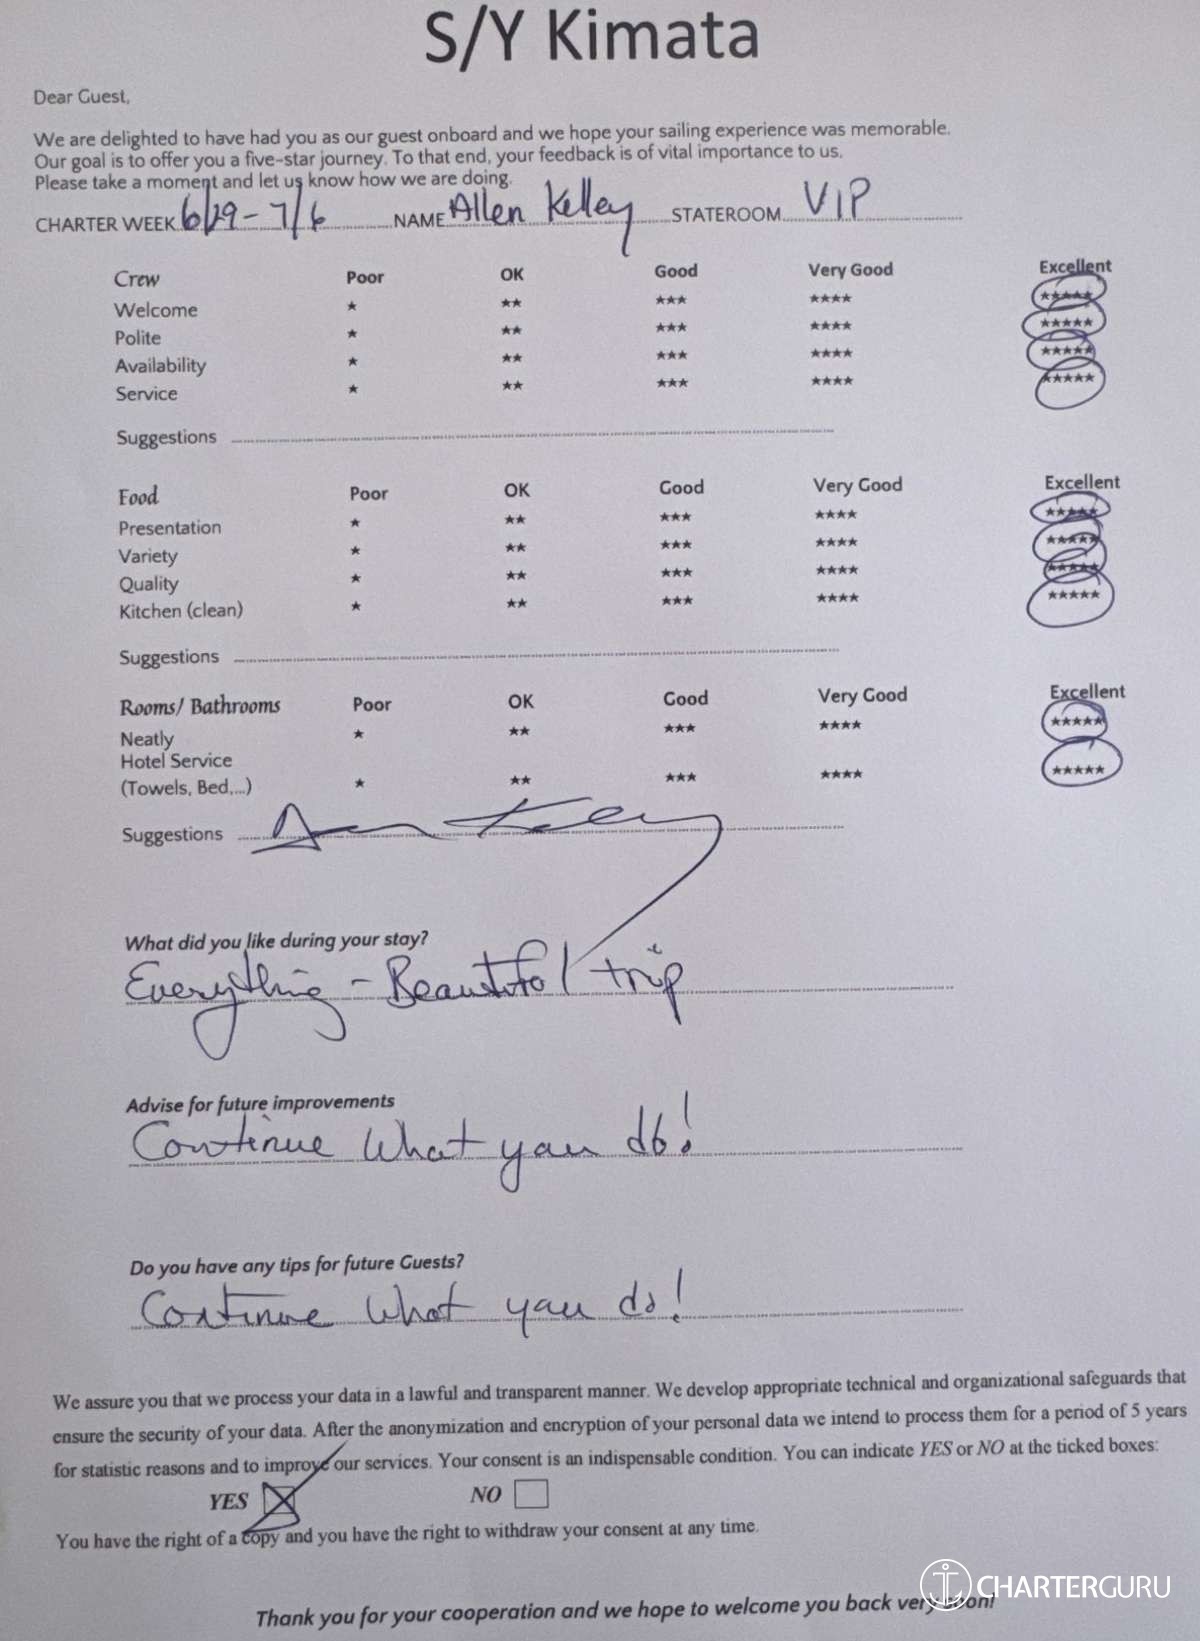 S/Y Kimata
Dear Guest,
We are delighted to have had you as our guest onboard and we hope your sailing experience was memorable.
Our goal is to offer you a five-star journey. To that end, your feedback is of vital importance to us.
Please take a moment and let us know how we are doing.
CHARTER WEEK 6/29 - 7/6 NAME Allen Kelley STATEROOM VIP
Crew Poor OK Good Very Good Excellent
Welcome ★ ★★ ★★★ ★★★★ ★★★★★
Polite ★ ★★ ★★★ ★★★★ ★★★★★
Availability ★ ★★ ★★★ ★★★★ ★★★★★
Service ★ ★★ ★★★ ★★★★ ★★★★★
Suggestions
Food Poor OK Good Very Good Excellent
Presentation ★ ★★ ★★★ ★★★★ ★★★★★
Variety ★ ★★ ★★★ ★★★★ ★★★★★
Quality ★ ★★ ★★★ ★★★★ ★★★★★
Kitchen (clean) ★ ★★ ★★★ ★★★★ ★★★★★
Suggestions
Rooms/ Bathrooms Poor OK Good Very Good Excellent
Neatly ★ ★★ ★★★ ★★★★ ★★★★★
Hotel Service
(Towels, Bed,...) ★ ★★ ★★★ ★★★★ ★★★★★
Suggestions
What did you like during your stay?
Everything - Beautiful trip
Advise for future improvements
Continue what you do!
Do you have any tips for future Guests?
Continue what you do!
We assure you that we process your data in a lawful and transparent manner. We develop appropriate technical and organizational safeguards that
ensure the security of your data. After the anonymization and encryption of your personal data we intend to process them for a period of 5 years
for statistic reasons and to improve our services. Your consent is an indispensable condition. You can indicate YES or NO at the ticked boxes:
YES NO
You have the right of a copy and you have the right to withdraw your consent at any time.
CHARTERGURU
Thank you for your cooperation and we hope to welcome you back very soon!